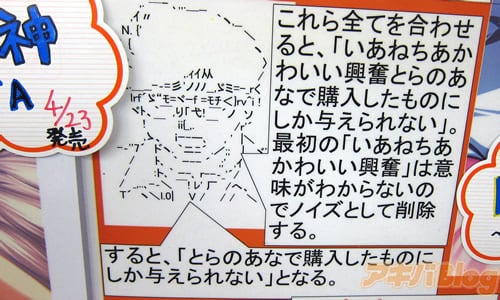 神
A
4/23
発売
これら全てを合わせ
ると、「いあねちあか
わいい興奮とらのあ
なで購入したものに
しか与えられない」。
最初の「いあねちあ
かわいい興奮」は意
味がわからないの
でノイズとして削除
する。
すると、「とらのあなで購入したものに
しか与えられない」となる。
アキバBlog